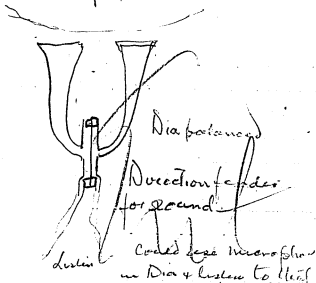 Dia balanced
Direction finder
for sound
Listen
Could use microphone
in Dia & listen to this